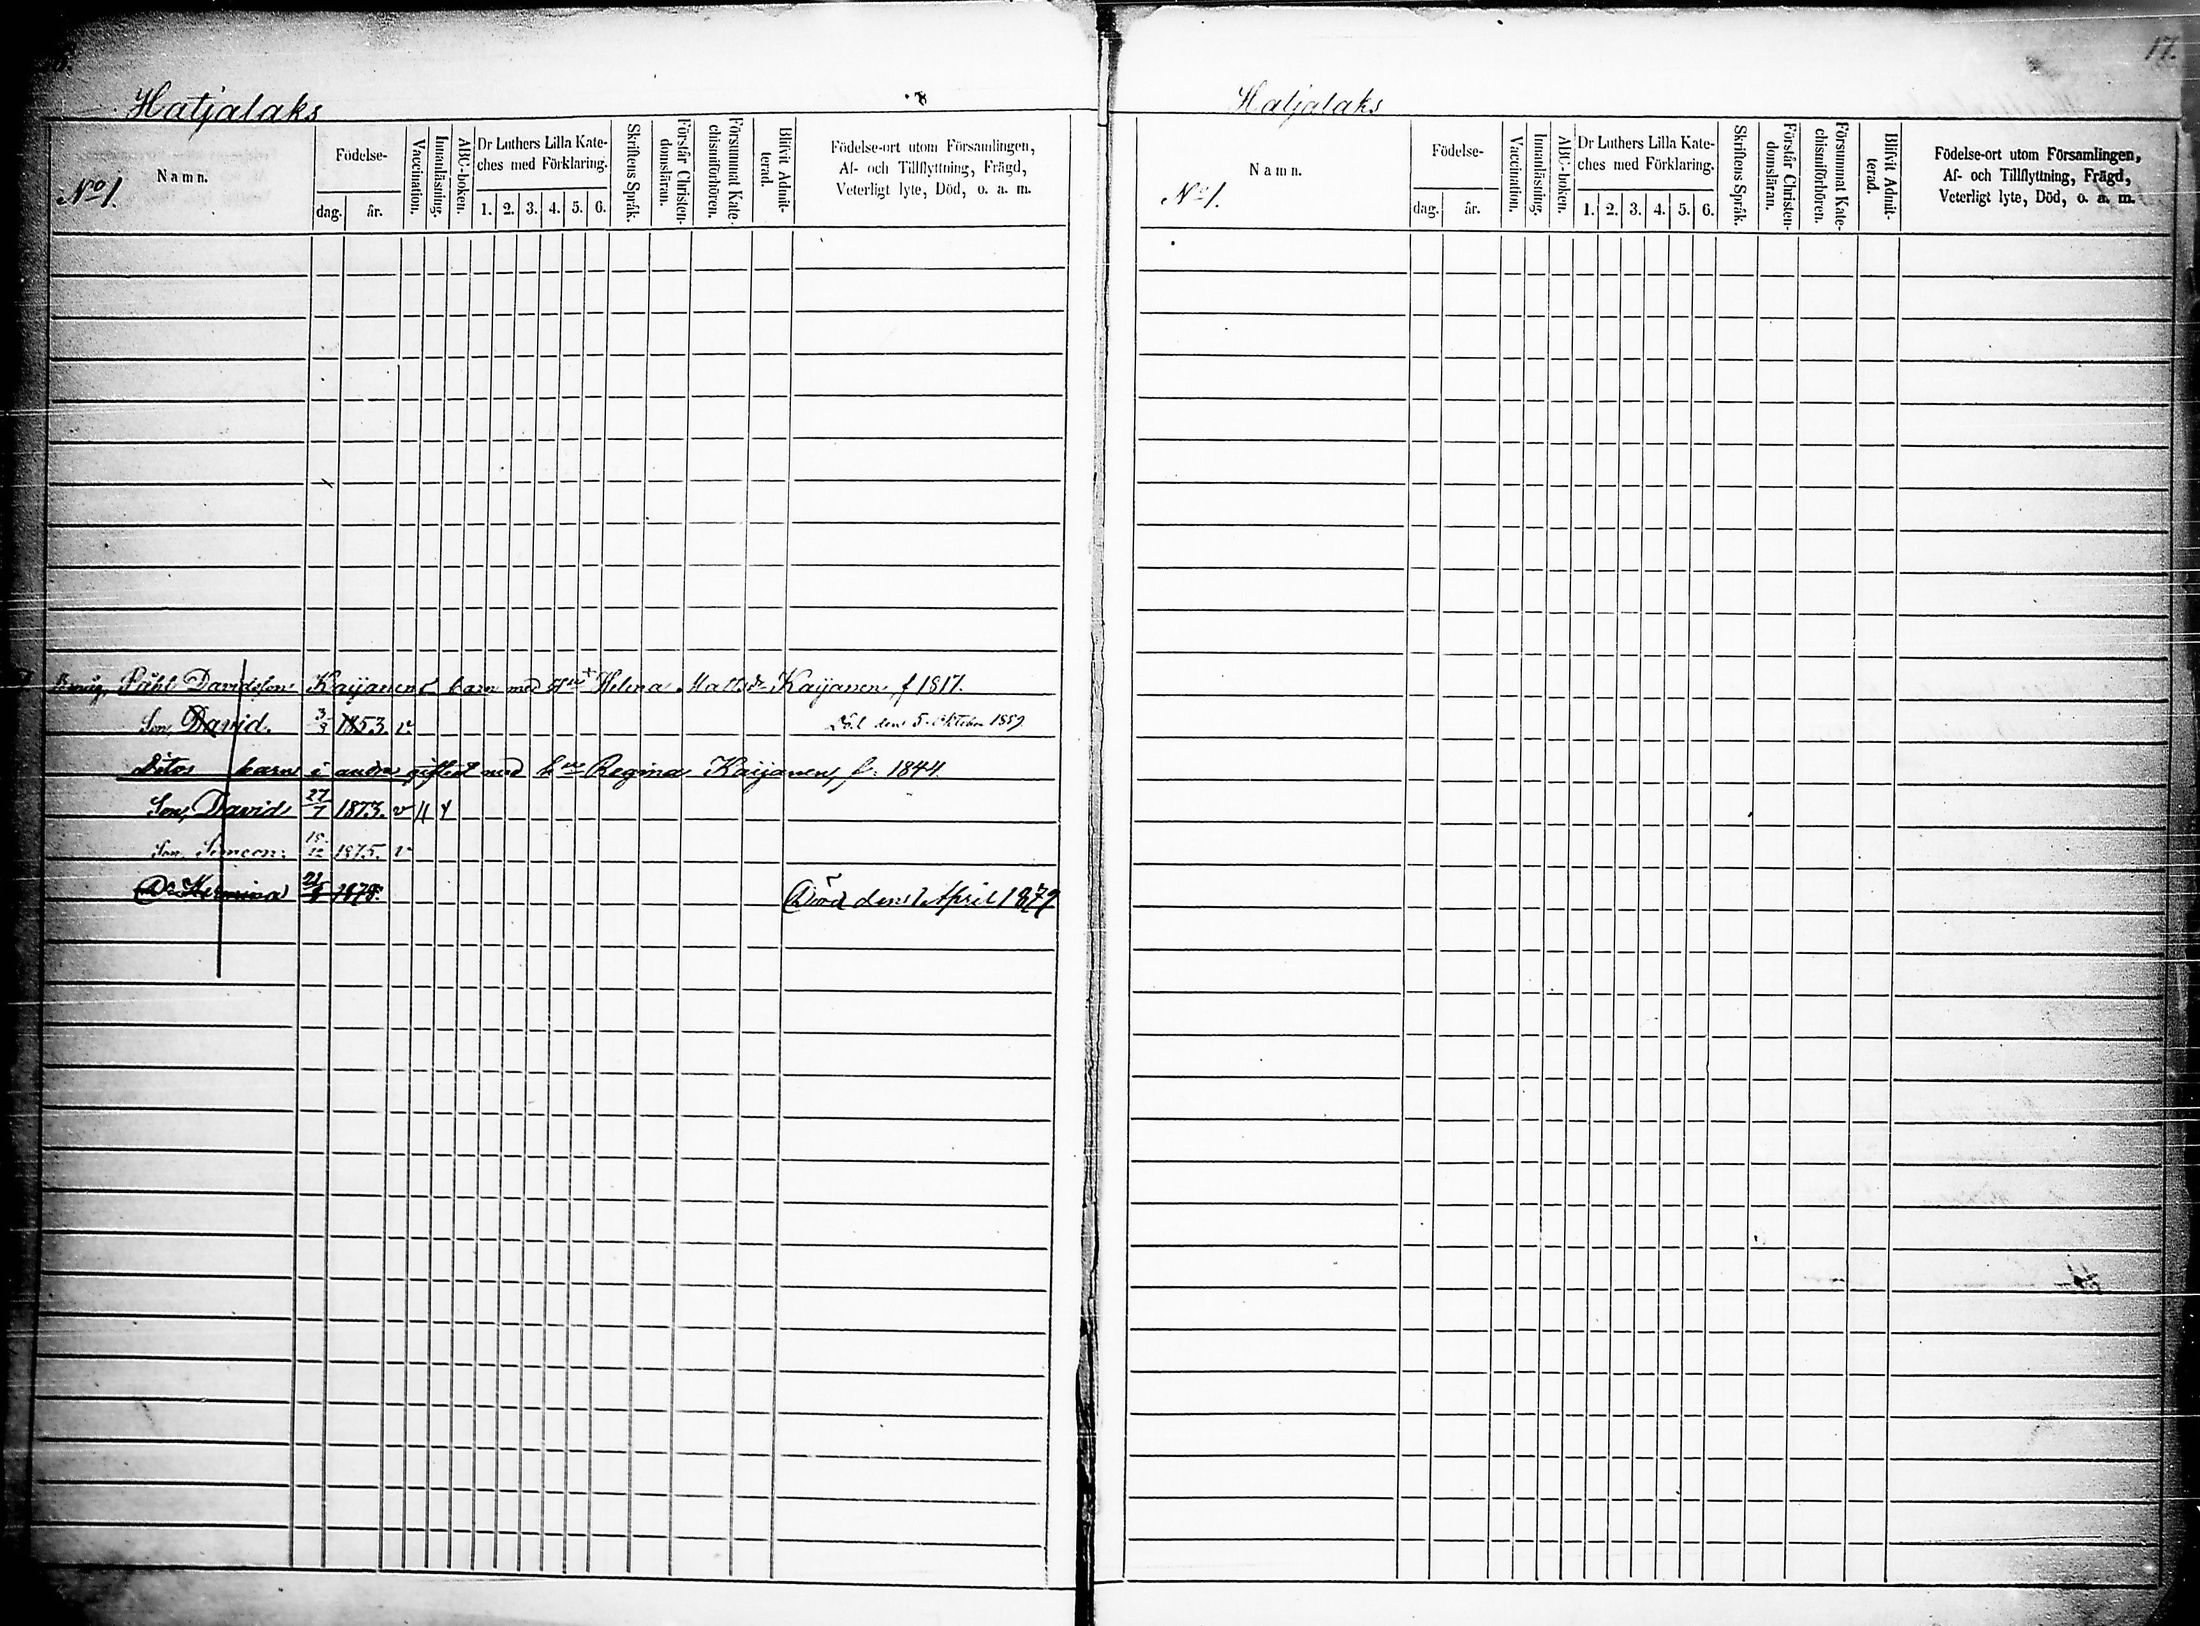 Hatjalaks
No 1.
Namn.
Födelse-
dag. år.
Vaccination.
Innanläsning.
ABC-boken.
Dr Luthers Lilla Kate-
ches med Förklaring.
1. 2. 3. 4. 5. 6.
Skriftens Språk.
Förstår Christen-
domsläran.
Försummat Kate-
chismiförhören.
Blifvit Admit-
terad.
Födelse-ort utom Församlingen,
Af- och Tillflyttning, Frägd,
Veterligt lyte, Död, o. a. m.
Påhl Davidsson Kaijanens barn med Helena Matts dr Kaijanen f 1817.
Son, David. 3/3 1853. v. Död den 5. Oktober 1859
Ditos barn i andra giftet med h:u Regina Kaijanen, f. 1844.
Son, David 27/7 1873. v
Son, Simeon. 1875. v
Dr Hermina 1878. Död den 1 April 1879
17.
Hatjalaks
No 1.
Namn.
Födelse-
dag. år.
Vaccination.
Innanläsning.
ABC-boken.
Dr Luthers Lilla Kate-
ches med Förklaring.
1. 2. 3. 4. 5. 6.
Skriftens Språk.
Förstår Christen-
domsläran.
Försummat Kate-
chismiförhören.
Blifvit Admit-
terad.
Födelse-ort utom Församlingen,
Af- och Tillflyttning, Frägd,
Veterligt lyte, Död, o. a. m.